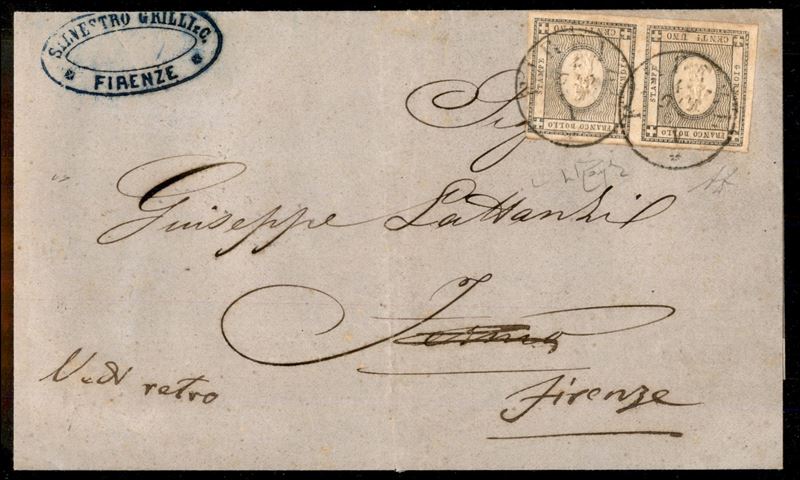 SILVESTRO GRILLI & C.
FIRENZE
FRANCO BOLLO
CENT! UNO
STAMPE
FRANCO BOLLO
CENT! UNO
STAMPE
GIORNALI
Sig
Giuseppe Lattanzi
Vedi retro
Firenze